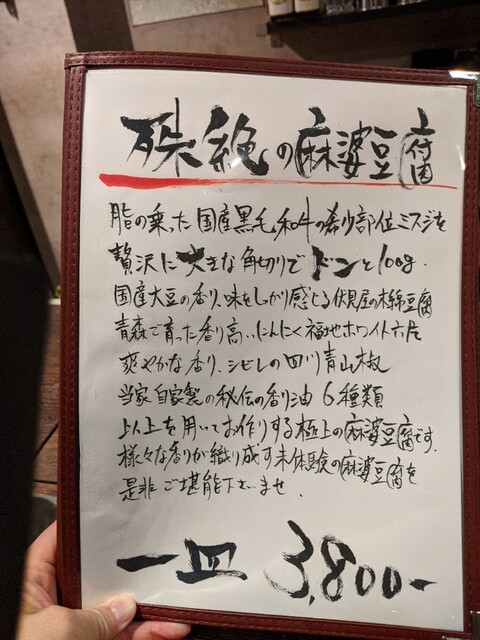 殊絶の麻婆豆腐
脂の乗った国産黒毛和牛の希少部位ミスジを
贅沢に大きな角切りでドンと100g.
国産大豆の香り、味をしっかり感じる伏見屋の木綿豆腐
青森で育った香り高いにんにく福地ホワイト六片
爽やかな香り、シビレの四川青山椒
当家自家製の秘伝の香り油 6種類
以上を用いてお作りする極上の麻婆豆腐です.
様々な香りが織り成す未体験の麻婆豆腐を
是非ご堪能下さいませ.
一皿 3,800-